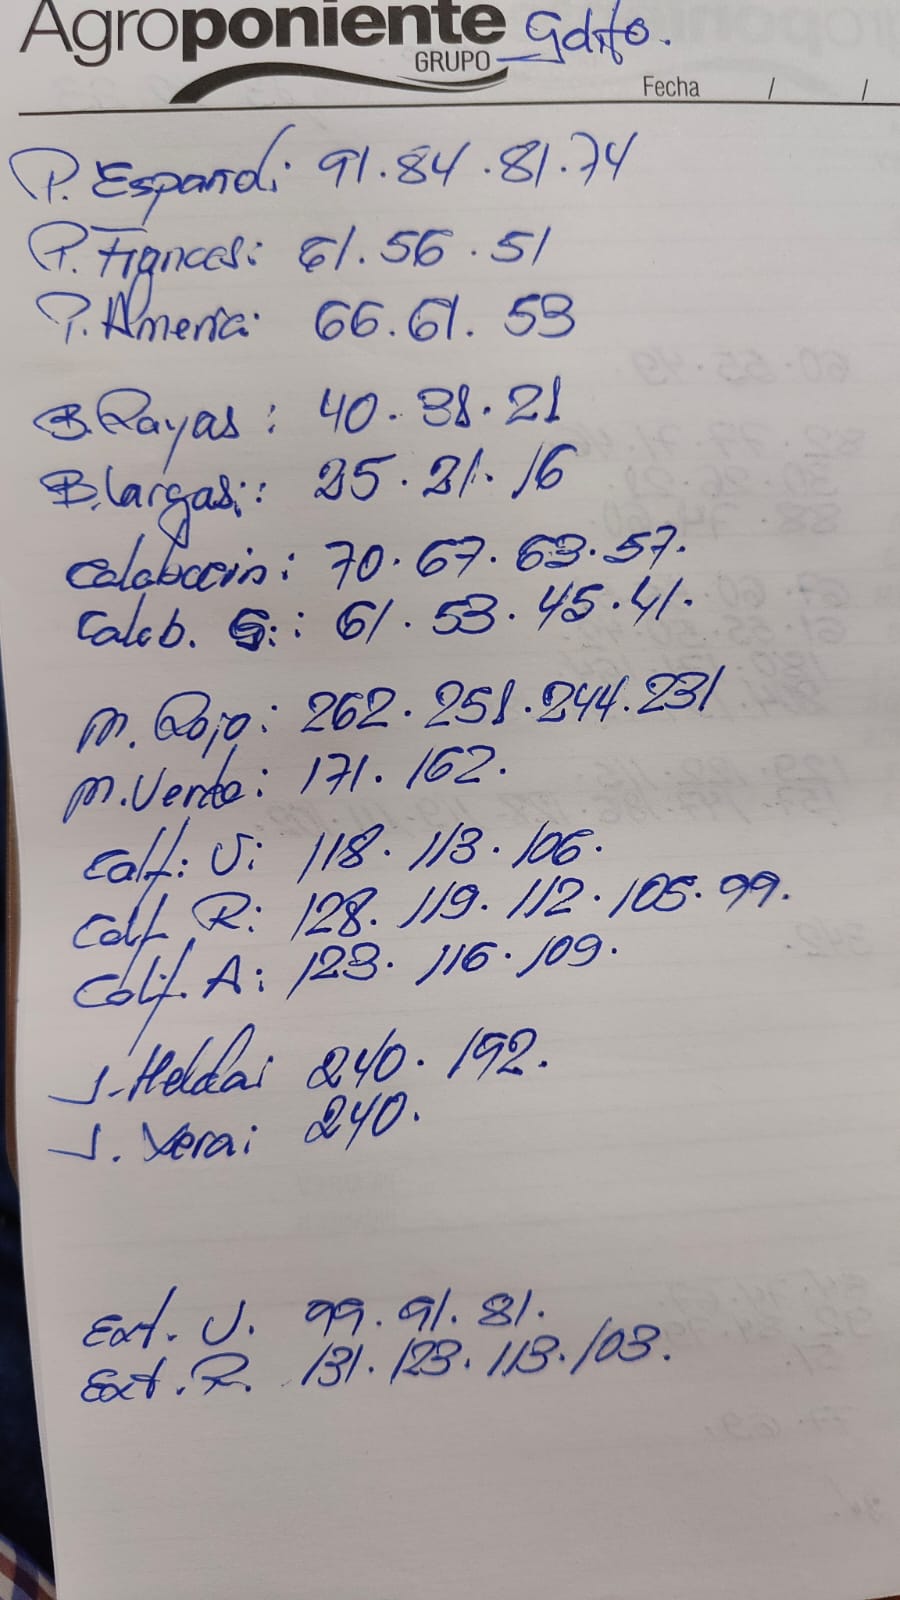 Agroponiente Gdito.
GRUPO
Fecha / /
P. Español: 91.84.81.74
P. Frances: 61.56.51
P. Almeria: 66.61.53
B. Rayas: 40.31.21
B. Largas: 25.21.16
Calabacin: 70.67.63.57.
Calab. G: 61.53.45.41.
M. Rojo: 262.251.244.231
M. Verde: 171.162.
Calif. V: 118.113.106.
Calif. R: 128.119.112.105.99.
Calif. A: 123.116.109.
J. Helda: 240.192.
J. Xera: 240.
Ext. V. 99.91.81.
Ext. R. 131.123.113.103.